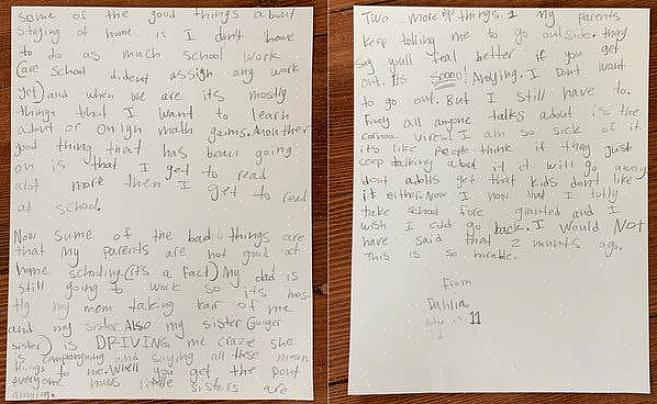 some of the good things about
staying at home is I don't have
to do as much school work
(are school dident assign any work
yet) and when we are its mostly
things that I want to learn
about or onlyn math gaims. Another
good thing that has bean going
on is that I get to read
alot more then I get to read
at school.
Now sume of the bad things are
that my parents are not good at
home schooling. (it's a fact) My dad is
still going to work so its mos-
tly my mom taking kair of me
and my sister. Also my sister (younger
sister) is DRIVING me crazie she
is complanging and saying all these mean
things to me. Whell you get the pont
everyone nows little sisters are
Two more things. 1 My parents
keep telling me to go outside. they
say you'll feal better if you get
out. Its soooo! Anoying. I Dont want
to go out. But I still have to.
Finely all anyone talks about is the
corona vires! I am so sick of it
its like people think if they just
ceep talking about it it will go away
dont adolts get that kids dont like
it either. Now I now that I tully
take school fore granted and I
wish I cud go back. I would NOT
have said that 2 munts ago.
This is so horable.
from
Dahlia
who is 11